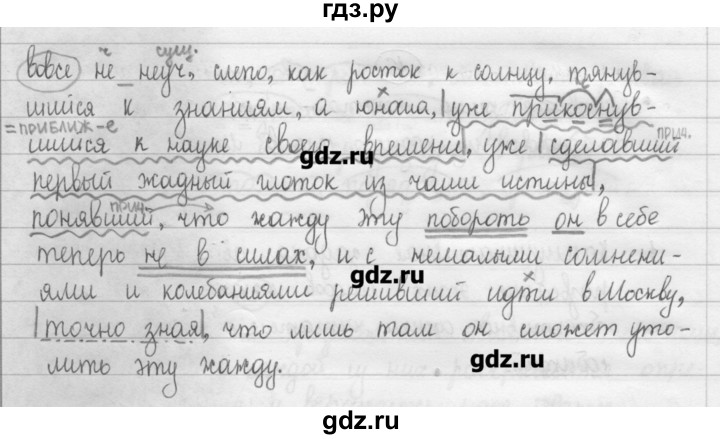 гдз.ру
ч сущ.
вовсе не неуч, слепо, как росток к солнцу, тянув-
шийся к знаниям, а юноша, уже прикоснув-
= ПРИБЛИЖ-Е
шийся к науке своего времени, уже сделавший
прич.
первый жадный глоток из чаши истины,
прич.
понявший, что жажду эту побороть он в себе
теперь не в силах, и с немалыми сомнени-
ями и колебаниями решивший идти в Москву,
точно зная, что лишь там он сможет уто-
лить эту жажду.
gdz.ru
gdz.ru
gdz.ru
gdz.ru